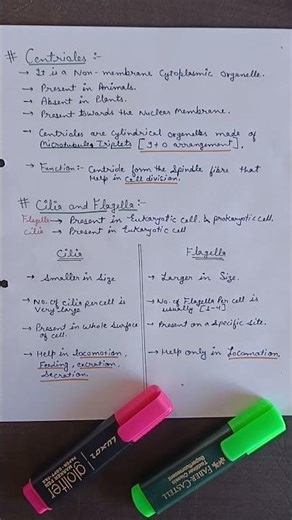 # Centrioles :-
→ It is a Non-membrane Cytoplasmic Organelle.
→ Present in Animals.
→ Absent in Plants.
→ Present towards the Nuclear Membrane.
→ Centrioles are cylindrical organelles made of
Microtubules Triplets [9+0 arrangement].
→ Function:- Centriole form the Spindle fibre that
Help in Cell division.
# Cilia and Flagella :-
Flagella → Present in Eukaryotic cell & prokaryotic cell.
Cilia → Present in Eukaryotic cell
Cilia
→ Smaller in Size
→ No. of Cilia per cell is
Very large
→ Present in whole Surface
of cell.
→ Help in locomotion,
Feeding, excration,
Secration.
Flagella
→ Larger in Size.
→ No. of Flagella Per cell is
usually [1-4]
→ Present on a Specific Site.
→ Help only in Locomation.
LUXOR
gloliter
FABER-CASTELL
Textliner Classic